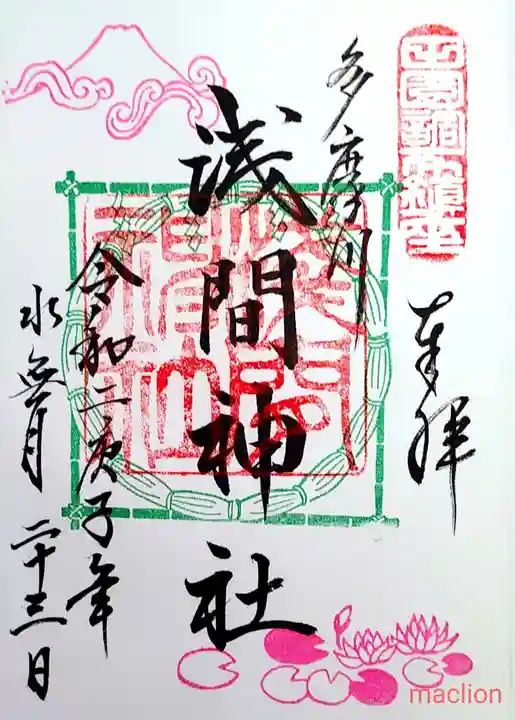 奉拝
多摩川
浅間神社
令和二庚子年
水無月 二十三日
浅間神社
maclion